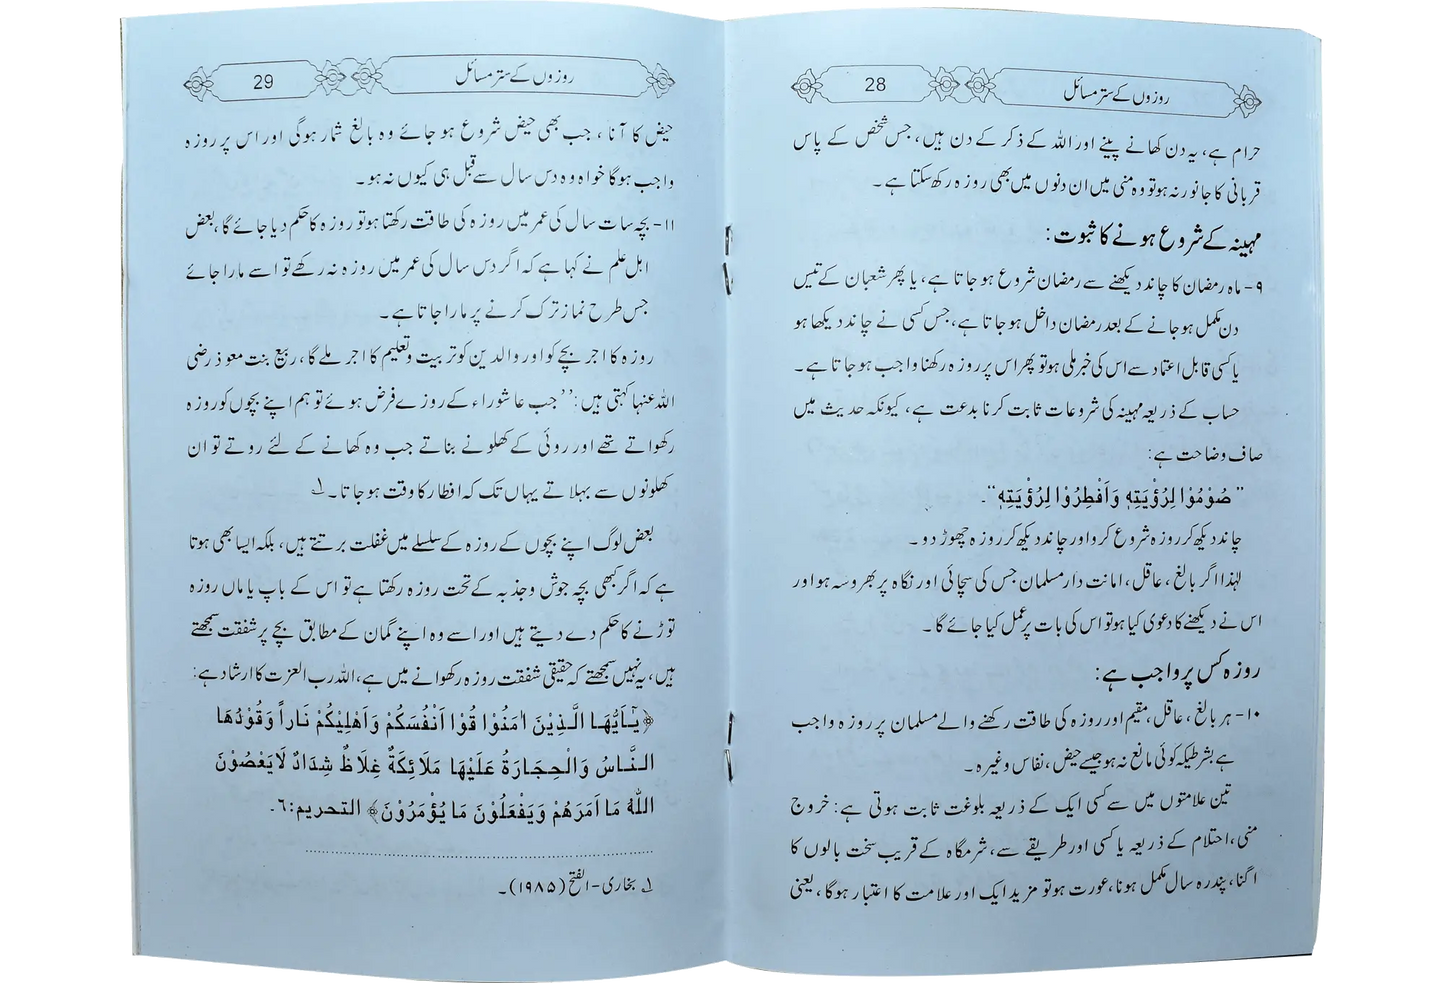 روزوں کے ستر مسائل
28
حرام ہے، یہ دن کھانے پینے اور اللہ کے ذکر کے دن ہیں، جس شخص کے پاس
قربانی کا جانور نہ ہو تو وہ منی میں ان دنوں میں بھی روزہ رکھ سکتا ہے۔
مہینہ کے شروع ہونے کا ثبوت:
۹- ماہ رمضان کا چاند دیکھنے سے رمضان شروع ہو جاتا ہے، یا پھر شعبان کے تیس
دن مکمل ہو جانے کے بعد رمضان داخل ہو جاتا ہے، جس کسی نے چاند دیکھا ہو
یا کسی قابل اعتماد سے اس کی خبر ملی ہو تو پھر اس پر روزہ رکھنا واجب ہو جاتا ہے۔
حساب کے ذریعہ مہینہ کی شروعات ثابت کرنا بدعت ہے، کیونکہ حدیث میں
صاف وضاحت ہے:
”صُوْمُوْا لِرُؤْيَتِهٖ وَاَفْطِرُوْا لِرُؤْيَتِهٖ“۔
چاند دیکھ کر روزہ شروع کرو اور چاند دیکھ کر روزہ چھوڑ دو۔
لہٰذا اگر بالغ، عاقل، امانت دار مسلمان جس کی سچائی اور نگاہ پر بھروسہ ہو اور
اس نے دیکھنے کا دعوی کیا ہو تو اس کی بات پر عمل کیا جائے گا۔
روزہ کس پر واجب ہے:
۱۰- ہر بالغ، عاقل، مقیم اور روزہ کی طاقت رکھنے والے مسلمان پر روزہ واجب
ہے بشرطیکہ کوئی مانع نہ ہو جیسے حیض، نفاس وغیرہ۔
تین علامتوں میں سے کسی ایک کے ذریعہ بلوغت ثابت ہوتی ہے: خروج
منی، احتلام کے ذریعہ یا کسی اور طریقے سے، شرمگاہ کے قریب سخت بالوں کا
اگنا، پندرہ سال مکمل ہونا، عورت ہو تو مزید ایک اور علامت کا اعتبار ہوگا، یعنی
روزوں کے ستر مسائل
29
حیض کا آنا، جب بھی حیض شروع ہو جائے وہ بالغ شمار ہوگی اور اس پر روزہ
واجب ہوگا خواہ وہ دس سال سے قبل ہی کیوں نہ ہو۔
۱۱- بچہ سات سال کی عمر میں روزہ کی طاقت رکھتا ہو تو روزہ کا حکم دیا جائے گا، بعض
اہل علم نے کہا ہے کہ اگر دس سال کی عمر میں روزہ نہ رکھے تو اسے مارا جائے
جس طرح نماز ترک کرنے پر مارا جاتا ہے۔
روزہ کا اجر بچے کو اور والدین کو تربیت و تعلیم کا اجر ملے گا، ربیع بنت معوذ رضی
اللہ عنہا کہتی ہیں: ’’جب عاشوراء کے روزے فرض ہوئے تو ہم اپنے بچوں کو روزہ
رکھواتے تھے اور روئی کے کھلونے بناتے جب وہ کھانے کے لئے روتے تو ان
کھلونوں سے بہلاتے یہاں تک کہ افطار کا وقت ہو جاتا۔ ۱؎
بعض لوگ اپنے بچوں کے روزہ کے سلسلے میں غفلت برتتے ہیں، بلکہ ایسا بھی ہوتا
ہے کہ اگر کبھی بچہ جوش و جذبہ کے تحت روزہ رکھتا ہے تو اس کے باپ یا ماں روزہ
توڑنے کا حکم دے دیتے ہیں اور اسے وہ اپنے گمان کے مطابق بچے پر شفقت سمجھتے
ہیں، یہ نہیں سمجھتے کہ حقیقی شفقت روزہ رکھوانے میں ہے، اللہ رب العزت کا ارشاد ہے:
﴿يٰٓاَيُّهَا الَّذِيْنَ اٰمَنُوْا قُوْا اَنْفُسَكُمْ وَاَهْلِيْكُمْ نَاراً وَقُوْدُهَا
النَّاسُ وَالْحِجَارَةُ عَلَيْهَا مَلَائِكَةٌ غِلَاظٌ شِدَادٌ لَا يَعْصُوْنَ
اللّٰهَ مَا اَمَرَهُمْ وَيَفْعَلُوْنَ مَا يُؤْمَرُوْنَ﴾ التحریم:٦۔
۱؎ بخاری-الفتح (۱۹۸۵)۔